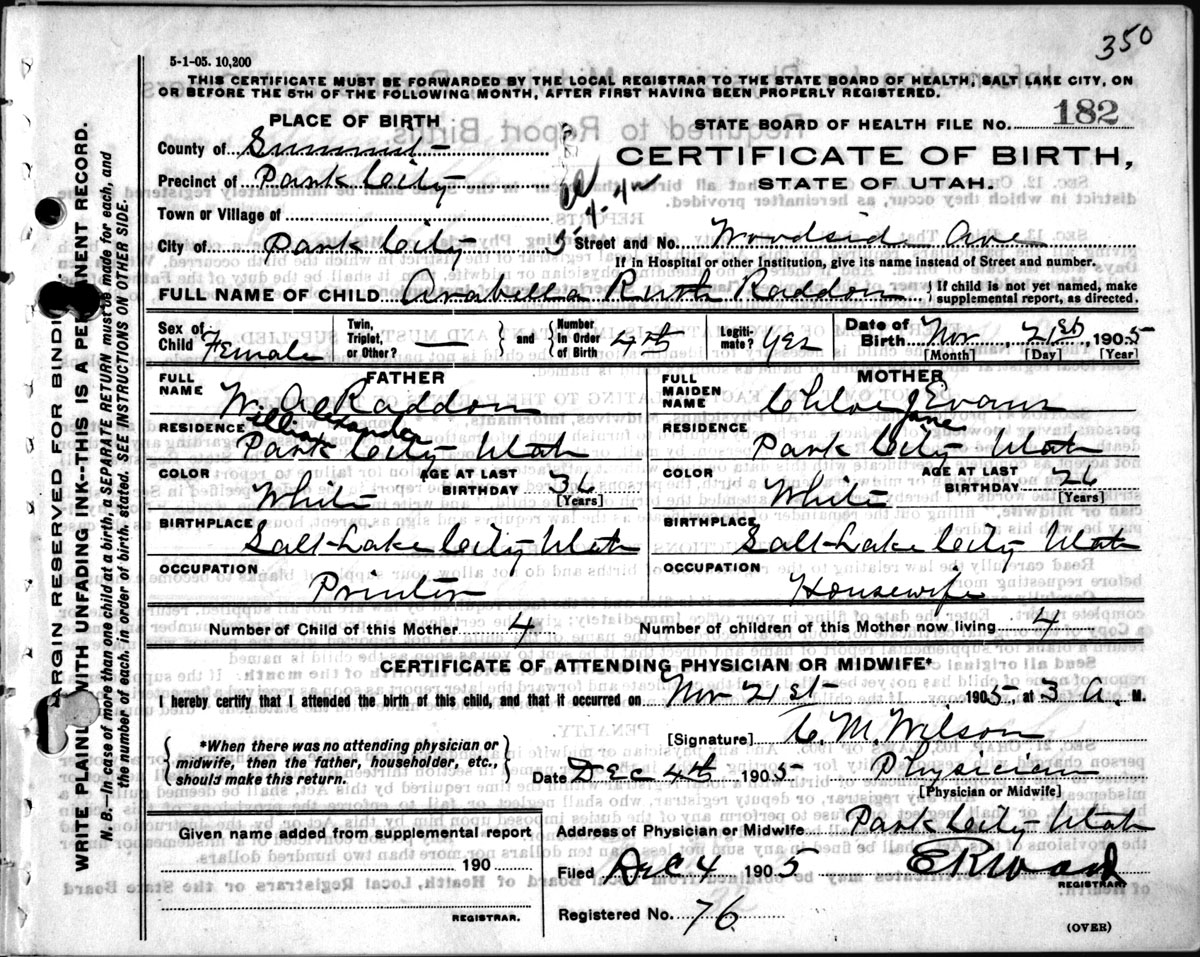 350
5-1-05. 10,200
THIS CERTIFICATE MUST BE FORWARDED BY THE LOCAL REGISTRAR TO THE STATE BOARD OF HEALTH, SALT LAKE CITY, ON
OR BEFORE THE 5TH OF THE FOLLOWING MONTH, AFTER FIRST HAVING BEEN PROPERLY REGISTERED.
PLACE OF BIRTH
STATE BOARD OF HEALTH FILE NO. 182
County of Summit
CERTIFICATE OF BIRTH,
Precinct of Park City
STATE OF UTAH.
Town or Village of
City of Park City Street and No. Woodside Ave
If in Hospital or other Institution, give its name instead of Street and number.
FULL NAME OF CHILD Arabella Ruth Raddon { If child is not yet named, make
supplemental report, as directed.
Sex of Child Female
Twin, Triplet, or Other? —
and
Number in Order of Birth 4th
Legitimate? Yes
Date of Birth Nov 21st 1905
[Month] [Day] [Year]
FATHER
FULL NAME W. A. Raddon
William Alexander
RESIDENCE
Park City Utah
COLOR White
AGE AT LAST BIRTHDAY 36
[Years]
BIRTHPLACE
Salt Lake City Utah
OCCUPATION
Printer
MOTHER
FULL MAIDEN NAME Chloe J Evans
Jane
RESIDENCE
Park City Utah
COLOR White
AGE AT LAST BIRTHDAY 26
[Years]
BIRTHPLACE
Salt Lake City Utah
OCCUPATION
Housewife
Number of Child of this Mother 4 Number of children of this Mother now living 4
CERTIFICATE OF ATTENDING PHYSICIAN OR MIDWIFE*
I hereby certify that I attended the birth of this child, and that it occurred on Nov 21st 1905, at 3 A. M.
*When there was no attending physician or
midwife, then the father, householder, etc.,
should make this return.
[Signature] C. M. Wilson
Date Dec 4th 1905 Physician
[Physician or Midwife]
Given name added from supplemental report
190
REGISTRAR.
Address of Physician or Midwife Park City Utah
Filed Dec 4 1905
REGISTRAR.
Registered No. 76
(OVER)
MARGIN RESERVED FOR BINDING.
WRITE PLAINLY WITH UNFADING INK--THIS IS A PERMANENT RECORD.
N. B.—In case of more than one child at a birth, a SEPARATE RETURN must be made for each, and
the number of each, in order of birth, stated. SEE INSTRUCTIONS ON OTHER SIDE.